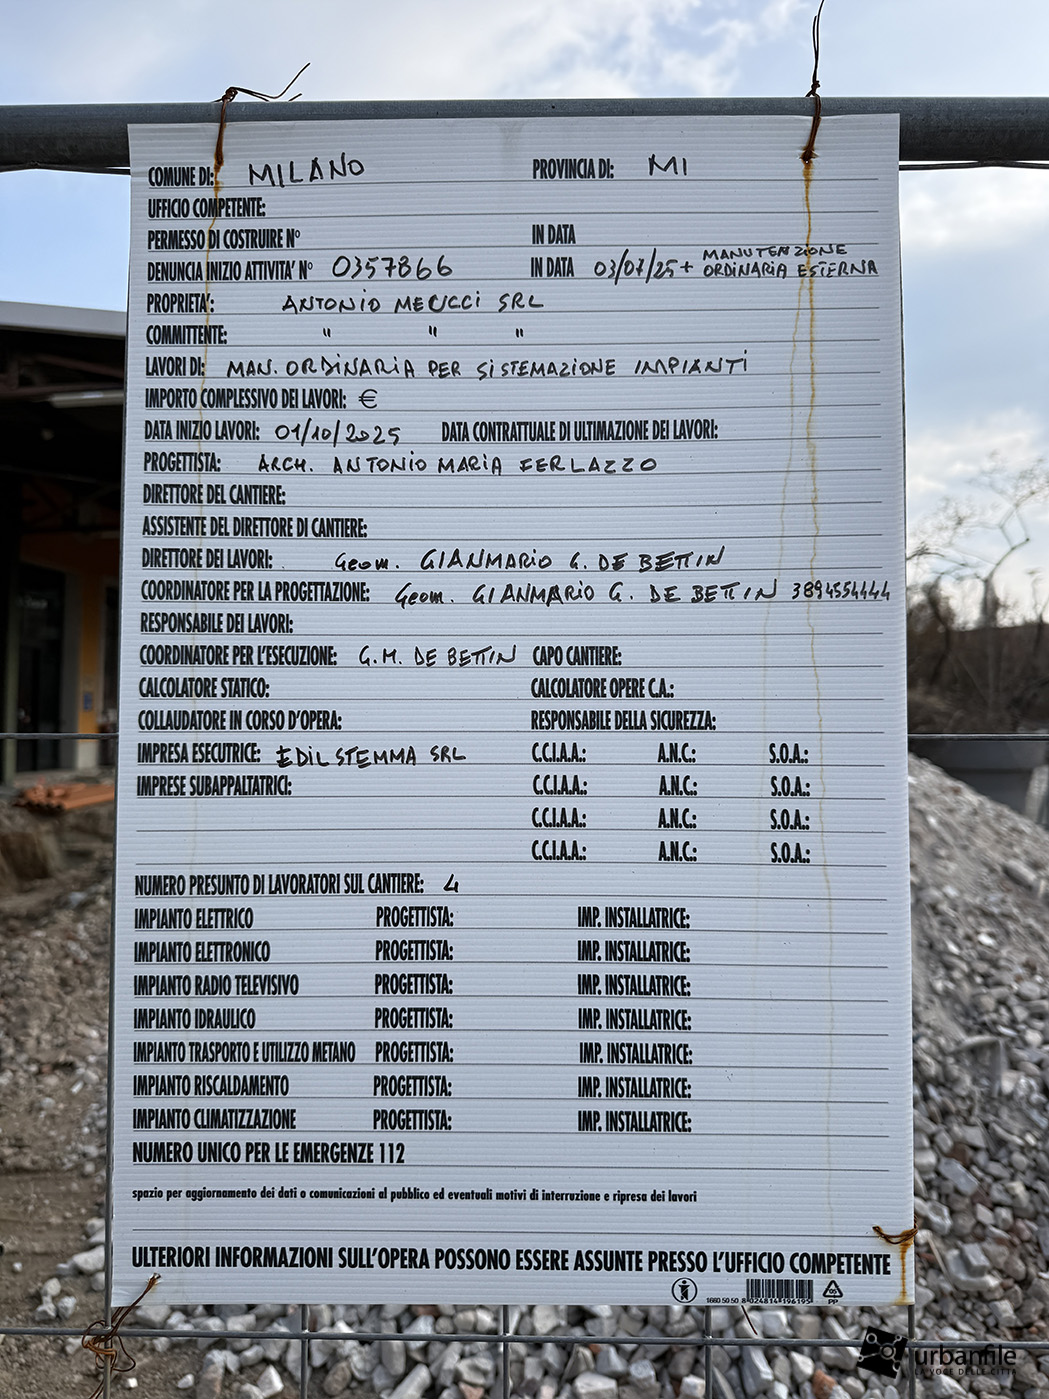 COMUNE DI: MILANO PROVINCIA DI: MI
UFFICIO COMPETENTE:
PERMESSO DI COSTRUIRE N° IN DATA
DENUNCIA INIZIO ATTIVITA' N° 0357866 IN DATA 03/07/25 + MANUTENZIONE ORDINARIA ESTERNA
PROPRIETA': ANTONIO MEUCCI SRL
COMMITTENTE: " " "
LAVORI DI: MAN. ORDINARIA PER SISTEMAZIONE IMPIANTI
IMPORTO COMPLESSIVO DEI LAVORI: €
DATA INIZIO LAVORI: 01/10/2025 DATA CONTRATTUALE DI ULTIMAZIONE DEI LAVORI:
PROGETTISTA: ARCH. ANTONIO MARIA FERLAZZO
DIRETTORE DEL CANTIERE:
ASSISTENTE DEL DIRETTORE DI CANTIERE:
DIRETTORE DEI LAVORI: Geom. GIANMARIO G. DE BETTIN
COORDINATORE PER LA PROGETTAZIONE: Geom. GIANMARIO G. DE BETTIN 3894554444
RESPONSABILE DEI LAVORI:
COORDINATORE PER L'ESECUZIONE: G.M. DE BETTIN CAPO CANTIERE:
CALCOLATORE STATICO: CALCOLATORE OPERE C.A.:
COLLAUDATORE IN CORSO D'OPERA: RESPONSABILE DELLA SICUREZZA:
IMPRESA ESECUTRICE: EDIL STEMMA SRL C.C.I.A.A.: A.N.C.: S.O.A.:
IMPRESE SUBAPPALTATRICI: C.C.I.A.A.: A.N.C.: S.O.A.:
C.C.I.A.A.: A.N.C.: S.O.A.:
C.C.I.A.A.: A.N.C.: S.O.A.:
NUMERO PRESUNTO DI LAVORATORI SUL CANTIERE: 4
IMPIANTO ELETTRICO PROGETTISTA: IMP. INSTALLATRICE:
IMPIANTO ELETTRONICO PROGETTISTA: IMP. INSTALLATRICE:
IMPIANTO RADIO TELEVISIVO PROGETTISTA: IMP. INSTALLATRICE:
IMPIANTO IDRAULICO PROGETTISTA: IMP. INSTALLATRICE:
IMPIANTO TRASPORTO E UTILIZZO METANO PROGETTISTA: IMP. INSTALLATRICE:
IMPIANTO RISCALDAMENTO PROGETTISTA: IMP. INSTALLATRICE:
IMPIANTO CLIMATIZZAZIONE PROGETTISTA: IMP. INSTALLATRICE:
NUMERO UNICO PER LE EMERGENZE 112
spazio per aggiornamento dei dati o comunicazioni al pubblico ed eventuali motivi di interruzione e ripresa dei lavori
ULTERIORI INFORMAZIONI SULL'OPERA POSSONO ESSERE ASSUNTE PRESSO L'UFFICIO COMPETENTE
1660 50 50 8 024814 196195 05 PP
urbanfile
LA VOCE DELLE CITTÀ